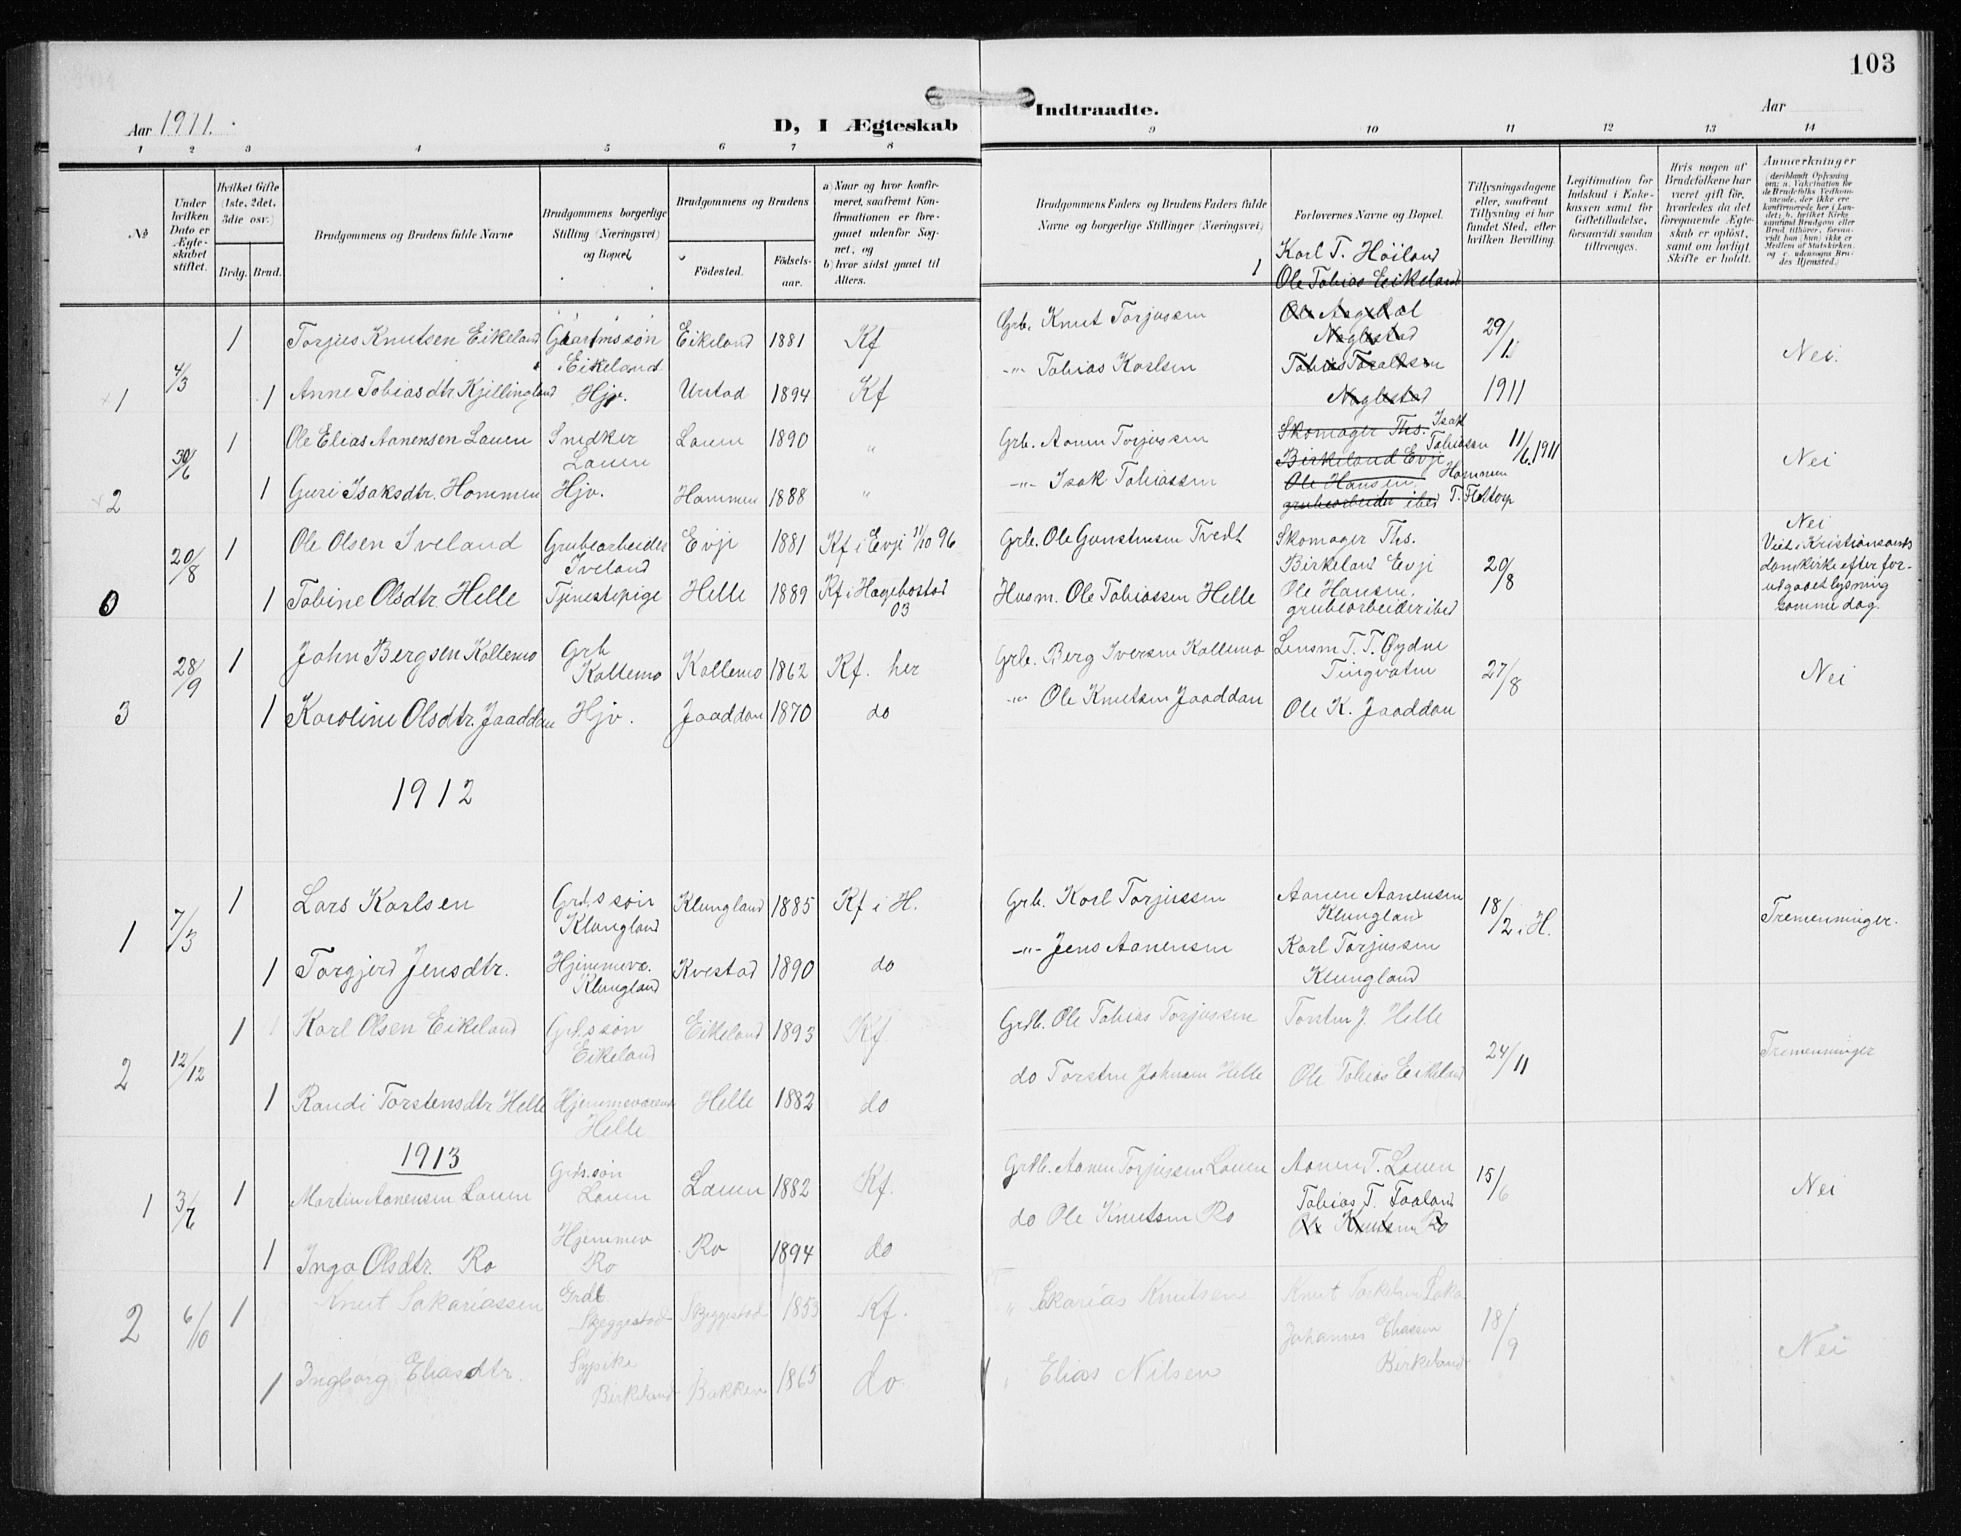 103
Aar 1911.
D, I Ægteskab
Indtraadte.
Aar
1 2 3 4 5 6 7 8 9 10 11 12 13 14
№
Under hvilken Dato er Ægteskabet stiftet.
Hvilket Gifte (1ste, 2det, 3die osv.)
Brdg. Brud.
Brudgommens og Brudens fulde Navne
Brudgommens borgerlige Stilling (Næringsvei) og Bopæl.
Brudgommens og Brudens
Födested.
Födselsaar.
a) Naar og hvor konfirmeret, saafremt Konfirmationen er foregaaet udenfor Sognet, og
b) hvor sidst gaaet til Alters.
Brudgommens Faders og Brudens Faders fulde Navne og borgerlige Stillinger (Næringsvei)
Forlovernes Navne og Bopæl.
Tillysningsdagene eller, saafremt Tillysning ei har fundet Sted, efter hvilken Bevilling.
Legitimation for Indskud i Enkekassen samt for Giftetilladelse, forsaavidt saadan tiltrænges.
Hvis nogen af Brudefolkene har været gift för, hvorledes da det foregaaende Ægteskab er oplöst, samt om lovligt Skifte er holdt.
Anmærkninger
1 Karl T. Höiland
Ole Tobias Eikeland
1 4/3 1 Torjus Knutsen Eikeland Eikeland Eikeland 1881 Kf Grb. Knut Torjussen 29/1 1911 Nei.
1 Anne Tobiasdtr Kjillingland Hjv. Urstad 1894 Kf -"- Tobias Karlsen
2 30/6 1 Ole Elias Aanensen Lauen Snedker Lauen Lauen 1890 " Grb. Aanen Torjussen 11/6 1911 Nei
Skomager Ths. Isak Tobiassen
Birkeland Evji
1 Guri Isaksdtr. Hommen Hjv. Hommen 1888 " -"- Isak Tobiassen
Ole Hansen.
grubearbeider ibid T. Flottorp
20/8 1 Ole Olsen Iveland Grubearbeider Iveland Evji 1881 Kf i Evji 11/10 96 Grb. Ole Gunstensen Tvedt Skomager Ths. Birkeland Evji 20/8
Nei
Viet i Kristiansands domkirke efter forudgaaet lysning samme dag.
1 Tobine Olsdtr. Helle Tjenestepige Helle 1889 Kf i Hægebostad 03 Husm. Ole Tobiassen Helle Ole Hansen. grubearbeider ibid
3 28/9 1 John Bergsen Kollemo Grb Kollemo Kollemo 1862 Kf. her Grb. Berg Iversen Kollemo Lensm T. T. Øydne Tingvatn 27/8 Nei
1 Karoline Olsdtr. Jaaddan Hjv. Jaaddan 1870 do -"- Ole Knutsen Jaaddan Ole K. Jaaddan
1912
1 7/3 1 Lars Karlsen Grds søn Klungland Klungland 1885 Kf i H. Grb. Karl Torjussen Aanen Aanensen Klungland 18/2 i H. Tremenninger.
1 Torgjerd Jensdtr. Hjemmevr. Klungland Kvestad 1890 do -"- Jens Aanensen Karl Torjussen Klungland
2 12/12 1 Karl Olsen Eikeland Grds søn Eikeland Eikeland 1893 Kf Grdb. Ole Tobias Torjussen Torsten J. Helle 24/11 Tremenninger
1 Randi Torstensdtr Helle Hjemmeværende Helle Helle 1882 do do Torsten Johnsen Helle Ole Tobias Eikeland
1913
1 3/7 1 Martin Aanensen Lauen Grds. søn Lauen Lauen 1882 Kf. Grdb. Aanen Torjussen Lauen Aanen T. Lauen 15/6 Nei
Tobias T. Faaland
1 Inga Olsdtr. Ro Hjemmev Ro Ro 1894 do do Ole Knutsen Ro Ole Knutsen Ro
2 6/10 1 Knut Sakariassen Grdb. Skeggestad Skeggestad 1853 Kf. " Sakarias Knutsen 18/9 Nei
1 Ingborg Eliasdtr. Birkeland Bakken 1865 do. " Elias Nilsen Johannes Eliassen Birkeland